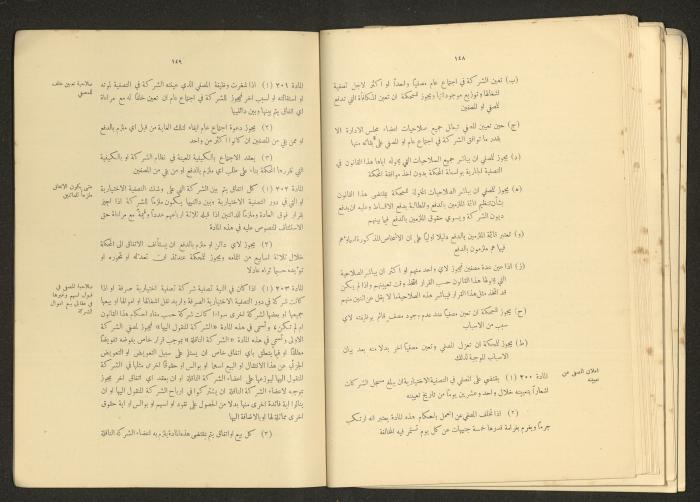 ١٤٨
(ب) تعين الشركة في اجتماع عام مصفياً واحداً او اكثر لاجل تصفية
اشغالها وتوزيع موجوداتها ويجوز للمحكمة ان تعين المكافأة التي تدفع
للمصفي او للمصفين
(ج) حين تعيين المصفي تبطل جميع صلاحيات اعضاء مجلس الادارة الا
بقدر ما توافق الشركة في اجتماع عام او المصفي على بقائه منها
(د) يجوز للمصفي ان يباشر جميع الصلاحيات التي يخوله اياها هذا القانون في
التصفية الجارية بواسطة المحكمة بدون اخذ موافقة المحكمة
(ه) يجوز للمصفي ان يباشر الصلاحيات المخولة للمحكمة بمقتضى هذا القانون
بشأن تنظيم قائمة الملزمين بالدفع والمطالبة بدفع الاقساط وعليه ان يدفع
ديون الشركة ويسوي حقوق الملزمين بالدفع فيما بينهم
(و) تعتبر قائمة الملزمين بالدفع دليلاً اولياً على ان الاشخاص المذكورة اسماؤهم
فيها هم ملزمون بالدفع
(ز) اذا عين عدة مصفين فيجوز لأي واحد منهم او اكثر ان يباشر الصلاحية
التي يخولها هذا القانون حسب القرار المتخذ وقت تعيينهم واذا لم يكن
قد اتخذ مثل هذا القرار فيباشر هذه الصلاحية ما لا يقل عن اثنين منهم
(ح) يجوز للمحكمة ان تعين مصفياً عند عدم وجود مصف قائم بوظيفته لأي
سبب من الاسباب
(ط) يجوز للمحكمة ان تعزل المصفي وتعين مصفياً آخر بدلاً منه بعد بيان
الاسباب الموجبة لذلك
اعلان المصفي عن
تعيينه
المادة ٢٠٠ (١) يقتضي على المصفي في التصفية الاختيارية ان يبلغ مسجل الشركات
اشعاراً بتعيينه خلال واحد وعشرين يوماً من تاريخ تعيينه
(٢) اذا تخلف المصفي عن العمل باحكام هذه المادة يعتبر انه ارتكب
جرماً ويغرم بغرامة قدرها خمسة جنيهات عن كل يوم تستمر فيه المخالفة
١٤٩
صلاحية تعيين خلف
للمصفي
المادة ٢٠١ (١) اذا شغرت وظيفة المصفي الذي عينته الشركة في التصفية لموته
او استقالته او لسبب آخر فيجوز للشركة في اجتماع عام ان تعين خلفاً له مع مراعاة
اي اتفاق يتم بينها وبين دائنيها
(٢) يجوز دعوة اجتماع عام ايفاء لتلك الغاية من قبل اي ملزم بالدفع
او ممن بقي من المصفين ان كانوا اكثر من واحد
(٣) يعقد الاجتماع بالكيفية المعينة في نظام الشركة او بالكيفية
التي تقررها المحكمة بناء على طلب اي ملزم بالدفع او من بقي من المصفين
متى يكون الاتفاق
ملزماً للدائنين
المادة ٢٠٢ (١) كل اتفاق يتم بين الشركة التي على وشك التصفية الاختيارية
او التي في دور التصفية الاختيارية وبين دائنيها يكون ملزماً للشركة اذا اجيز
بقرار فوق العادة وملزماً للدائنين اذا قبله ثلاثة ارباعهم عدداً وقيمة مع مراعاة حق
الاستئناف المنصوص عليه في هذه المادة
(٢) يجوز لأي دائن او ملزم بالدفع ان يستأنف الاتفاق الى المحكمة
خلال ثلاثة اسابيع من اتمامه ويجوز للمحكمة عندئذ ان تعدله او تحوره او
تؤيده حسبما تراه عادلاً
صلاحية المصفي في
قبول اسهم وغيرها
في مقابل بيع اموال
الشركة
المادة ٢٠٣ (١) اذا كان في النية تصفية شركة تصفية اختيارية صرفة او اذا
كانت شركة في دور التصفية الاختيارية الصرفة واريد نقل اشغالها او اموالها او بيعها
جميعها او بعضها لشركة اخرى سواء كانت شركة حسب مفاد احكام هذا القانون
ام لم تكن، وتسمى في هذه المادة «الشركة المنقول اليها» فيجوز لمصفي الشركة
الاولى وتسمى في هذه المادة «الشركة الناقلة» بموجب قرار خاص يفوضه تفويضاً
مطلقاً او فيما يتعلق باي اتفاق خاص ان يستلم على سبيل التعويض او التعويض
الجزئي عن هذا الانتقال او البيع اسهماً او بوالس او حقوقاً اخرى مثلها في الشركة
المنقول اليها ليوزعها على اعضاء الشركة الناقلة او ان يعقد اي اتفاق آخر يجوز
بموجبه لاعضاء الشركة الناقلة ان يشتركوا في ارباح الشركة المنقول اليها او ان
ينالوا اية فائدة اخرى منها بدلاً من الحصول على نقود او اسهم او بوالس او اية حقوق
اخرى مماثلة لها او بالاضافة اليها
(٢) كل بيع او اتفاق يتم بمقتضى هذه المادة يلزم به اعضاء الشركة الناقلة